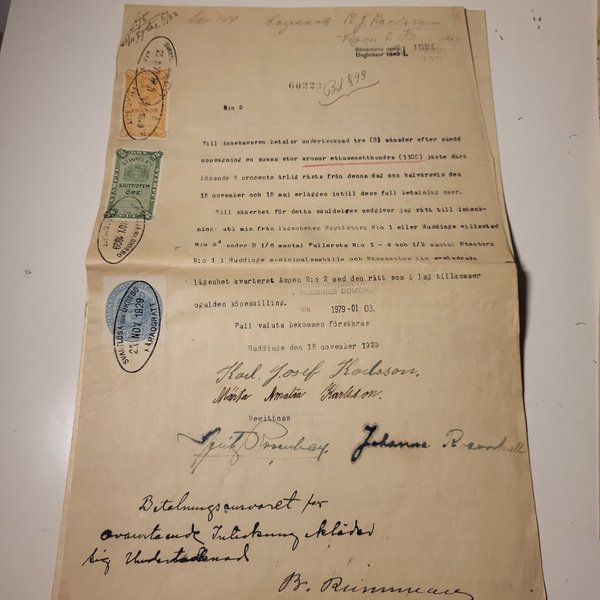 Lagfart K. J. Karlsson
Södertörns doms.
Dagboksnr 1949 1 1584
00223
N:o 2
Till innehavaren betalar undertecknad tre (3) månader efter skedd
uppsägning en summa stor kronor ettusenetthundra (1100) jäste därå
löpande 6 procents årlig ränta från denna dag som halvårsvis den
15 november och 15 maj erlägges intill dess full betalning sker.
Till säkerhet för detta skuldebrev medgiver jag rätt till inteck-
ning uti min från lägenheten Skyttetorp N:o 1 eller Huddinge villastad
N:o 2 under 3 1/6 mantal Fullersta N:o 1 - 4 och 1/2 mantal Stentorp
N:o 1 i Huddinge municipalsamhälle och Stockholms län avsöndrade
lägenhet kvarteret Ampen N:o 2 med den rätt som i lag tillkommer
ogulden köpeskilling.
HUDDINGE DOMSAGA
Ink 1979-01 03.
Full valuta bekommen försäkras
Huddinge den 15 november 1929
Karl Josef Karlsson.
Märta Amalia Karlsson.
Bevittnas
Johanna Rosenhall
Betalningsansvaret för
ovanstående Inteckning ikläder
sig Undertecknad
KRONOR
STÄMPLAT
SJUTTIOFEM
ÖRE
SVARTLÖSA OCH ÖKNEBO
21 NOV. 1929
HÄRADSRÄTT